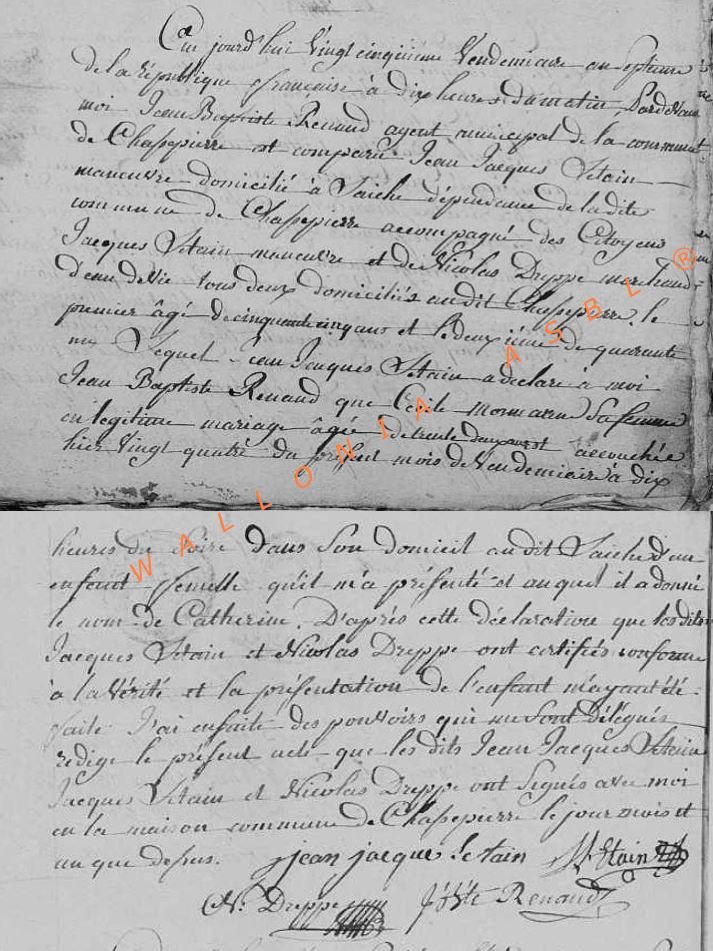 Cejourd'hui Vingt cinquieme Vendemiaire an septieme
de la république française à dix heures du matin, Pardevant
moi Jean Baptiste Renaud agent municipal de la commune
de Chassepierre est comparu Jean Jacques Létain
manœuvre domicilié à Laiche dépendance de la dite
commune de Chassepierre accompagné des Citoyens
Jacques Létain manœuvre et de Nicolas Dreppe marchand
d'eau de Vie tous deux domiciliés au dit Chassepierre, le
premier âgé de cinquante cinq ans et le deuxième de quarante
Lequel Jean Jacques Létain a déclaré à moi
Jean Baptiste Renaud que Cécile sa femme
en légitime mariage âgée de trente deux ans est accouchée
hier Vingt quatre du présent mois de Vendemiaire à dix
heures du Soire dans Son domicil au dit Laiche d'un
enfant femelle qu'il m'a présenté et auquel il a donné
le nom de Catherine. D'après cette déclaration que les dits
Jacques Létain et Nicolas Dreppe ont certifiés conforme
à la Vérité et la présentation de l'enfant m'ayant été
faite J'ai en faite des pouvoirs qui me Sont Délégués
rédigé le présent acte que les dits Jean Jacques Létain
Jacques Létain et Nicolas Dreppe ont Signés avec moi
en la maison commune de Chassepierre le jour mois et
an que dessus. jean jacque Letain
N: Dreppe J:Bte Renaud
WALLONIA ASBL ®